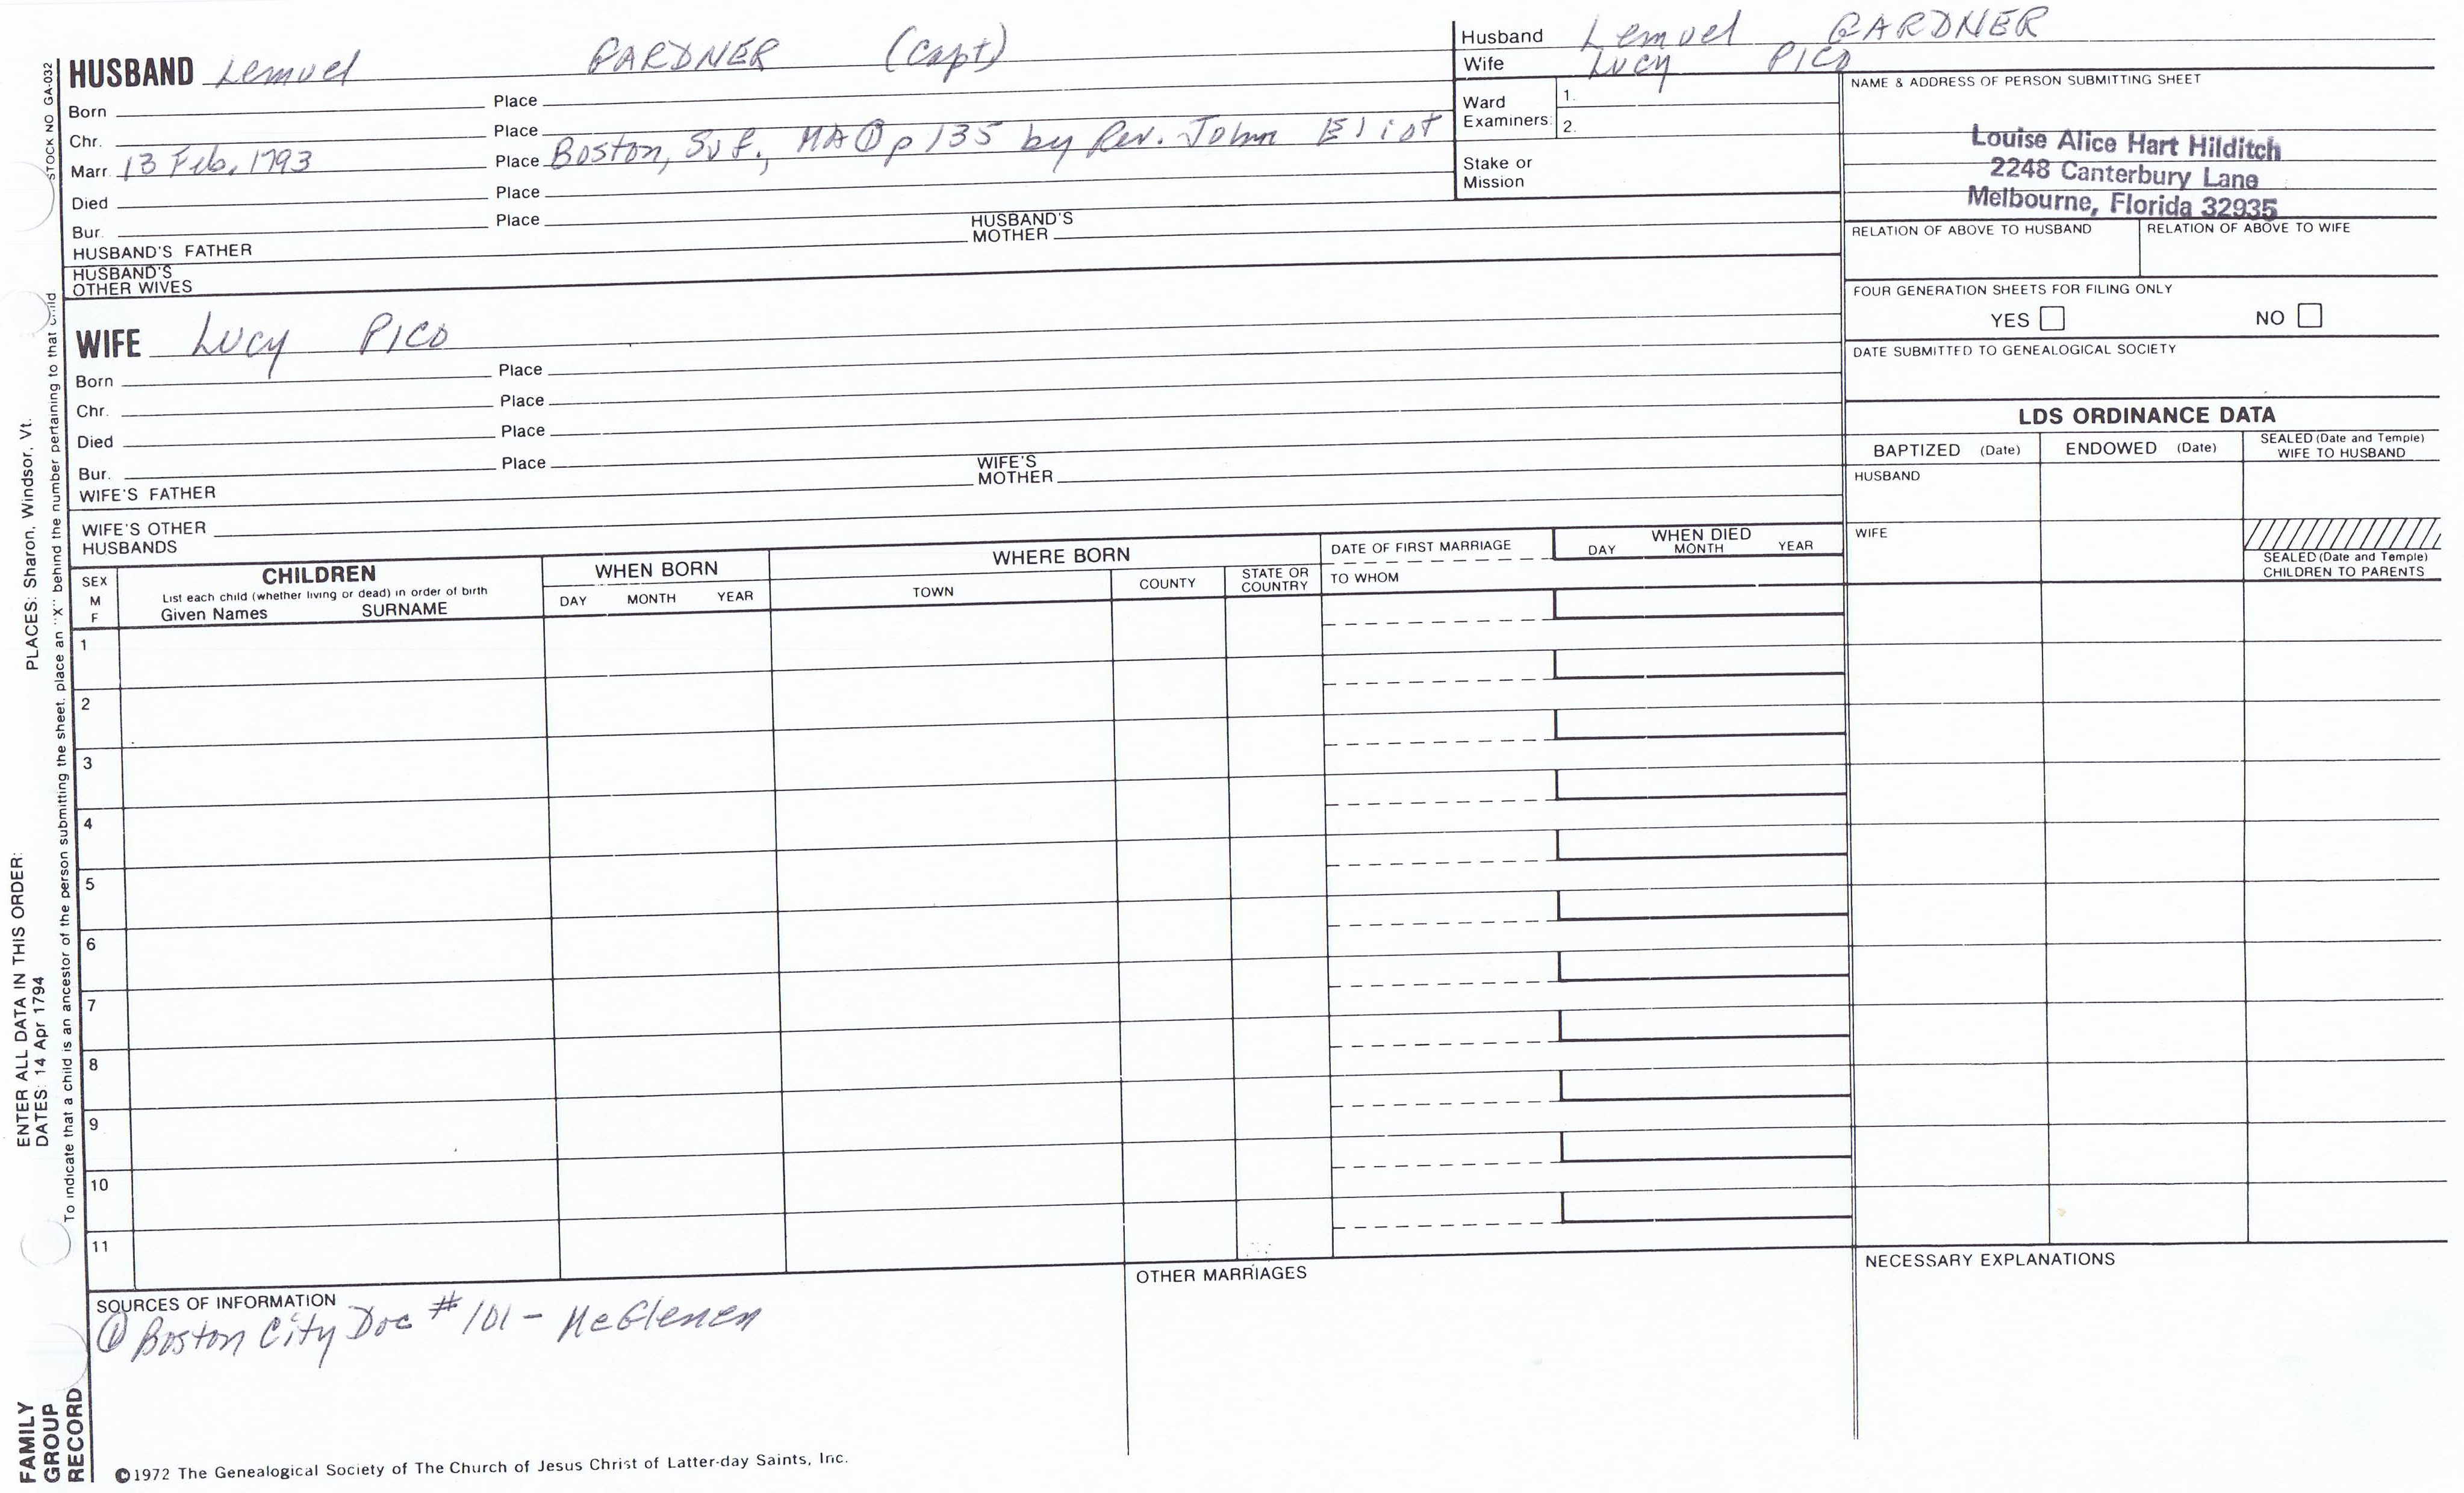 HUSBAND Lemuel GARDNER (Capt)
Born Place
Chr. Place
Marr. 13 Feb, 1793 Place Boston, Suf., MA ① p 135 by Rev. John Eliot
Died Place
Bur. Place
HUSBAND'S FATHER HUSBAND'S MOTHER
HUSBAND'S OTHER WIVES
WIFE Lucy PICO
Born Place
Chr. Place
Died Place
Bur. Place
WIFE'S FATHER WIFE'S MOTHER
WIFE'S OTHER HUSBANDS
Husband Lemuel GARDNER
Wife Lucy PICO
Ward Examiners: 1.
2.
Stake or Mission
NAME & ADDRESS OF PERSON SUBMITTING SHEET
Louise Alice Hart Hilditch
2248 Canterbury Lane
Melbourne, Florida 32935
RELATION OF ABOVE TO HUSBAND RELATION OF ABOVE TO WIFE
FOUR GENERATION SHEETS FOR FILING ONLY
YES NO
DATE SUBMITTED TO GENEALOGICAL SOCIETY
LDS ORDINANCE DATA
BAPTIZED (Date) ENDOWED (Date) SEALED (Date and Temple) WIFE TO HUSBAND
HUSBAND
WIFE
SEALED (Date and Temple)
CHILDREN TO PARENTS
SEX M F
CHILDREN
List each child (whether living or dead) in order of birth
Given Names SURNAME
WHEN BORN
DAY MONTH YEAR
WHERE BORN
TOWN COUNTY STATE OR COUNTRY
DATE OF FIRST MARRIAGE
TO WHOM
WHEN DIED
DAY MONTH YEAR
1
2
3
4
5
6
7
8
9
10
11
SOURCES OF INFORMATION
① Boston City Doc # 101 - McGlenen
OTHER MARRIAGES
NECESSARY EXPLANATIONS
©1972 The Genealogical Society of The Church of Jesus Christ of Latter-day Saints, Inc.
STOCK NO GA-032
To indicate that a child is an ancestor of the person submitting the sheet, place an "X" behind the number pertaining to that child
ENTER ALL DATA IN THIS ORDER:
DATES: 14 Apr 1794
PLACES: Sharon, Windsor, Vt.
FAMILY
GROUP
RECORD